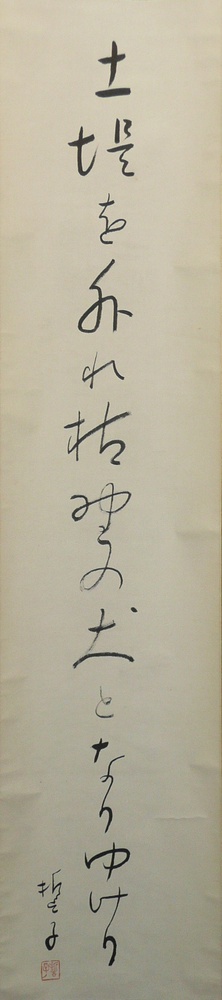 土堤を外れ枯野の犬となりゆけり
誓子